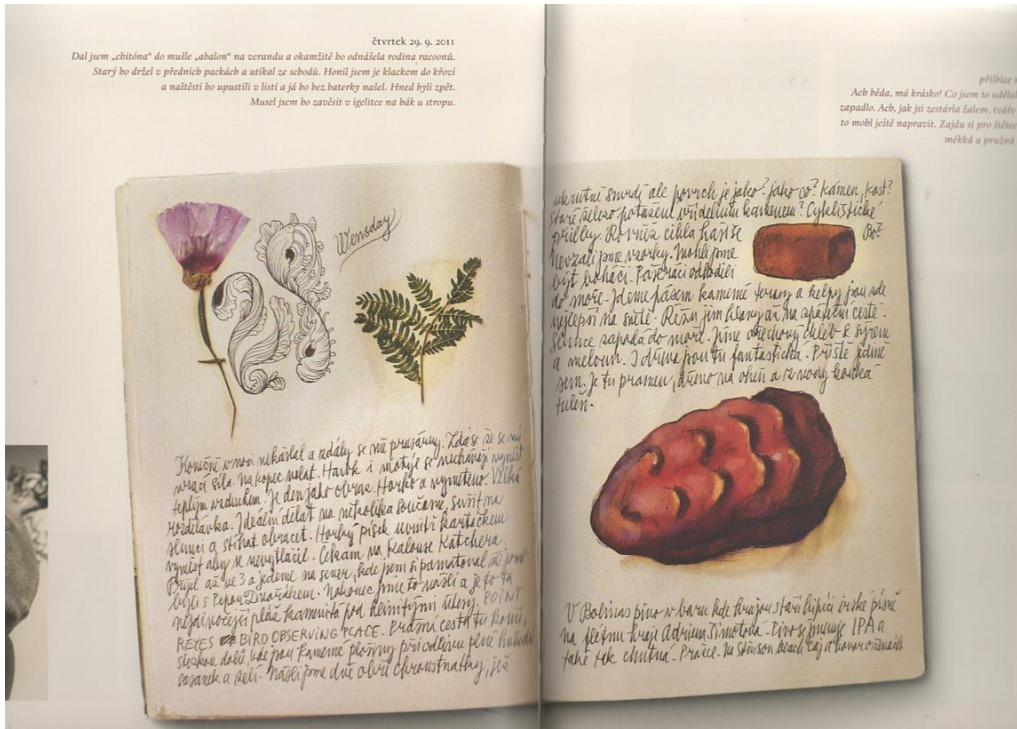 čtvrtek 29. 9. 2011
Dal jsem „chitóna“ do mušle „abalon“ na verandu a okamžitě ho odnášela rodina racoonů.
Starý ho držel v předních packách a utíkal ze schodů. Honil jsem je klackem do křoví
a naštěstí ho upustili v listí a já ho bez baterky našel. Hned byli zpět.
Musel jsem ho zavěsit v igelitce na hák u stropu.
přilbice
Ach běda, má krásko! Co jsem to udělal
zapadlo. Ach, jak jsi zestárla žalem, tváře
to mohl ještě napravit. Zajdu si pro štětec
měkká a pružná
Wensday
Konečně v noci nekášlal a zdály se mě prasárny. Zdá se že se mi
vrací síla. Na kopec malat. Havok i motýle se nechávají vynést
teplým vzduchem. Je den jako obraz. Horko a vymeteno. Velká
rozdělávka. Ideální dělat na několika současně, sušit na
slunci a stíhat obracet. Horký písek kartáčkem
vymést aby se nevytlačil. Čekám na Kalouse Katchera.
Přijel až ve 3 a jedeme na sever, kde jsem si pamatoval že jsme
byli s Pepou Dvořákem. Nakonec jsme to našli a je to ta
nejdivočejší pláž kamenitá pod útesy. POINT
REYES BIRD OBSERVING PLACE. Prázdní cesta tu končí,
stezkou dolů, kde jsou kamenné plošiny při odlivu plné
sasanek a řas. Našli jsme dvě obří chroustnatky, již
ukrutně smrdí ale povrch je jako? jako co? kámen, kost?
Staré železo potažené vřídelním kamenem? Cyklistické
přilby. Rovněž cihla Bo?
Nevzali jsme vzorky. Mohli jsme
být boháči. Pašeráci odhodili
do moře. Jdeme pásem kamenné terasy a kelpy jsou zde
nejlepší na světě. Řežu jim hlavy až na zpáteční cestě.
Slunce zapadá do moře. Jíme ořechový chleb s sýrem
a meloun. I dřeva jsou tu fantastická. Příště jedině
sem. Je tu pramen, dřevo na oheň a z vody kouká
tuleň.
V Bolinas pivo v baru kde hrajou staří hipíci irské písně
na flétnu hraje Adriena Šimotová. Pivo se jmenuje IPA a
také tak chutná. Práce. Na Stinson Beach čaj a hovor o ženách